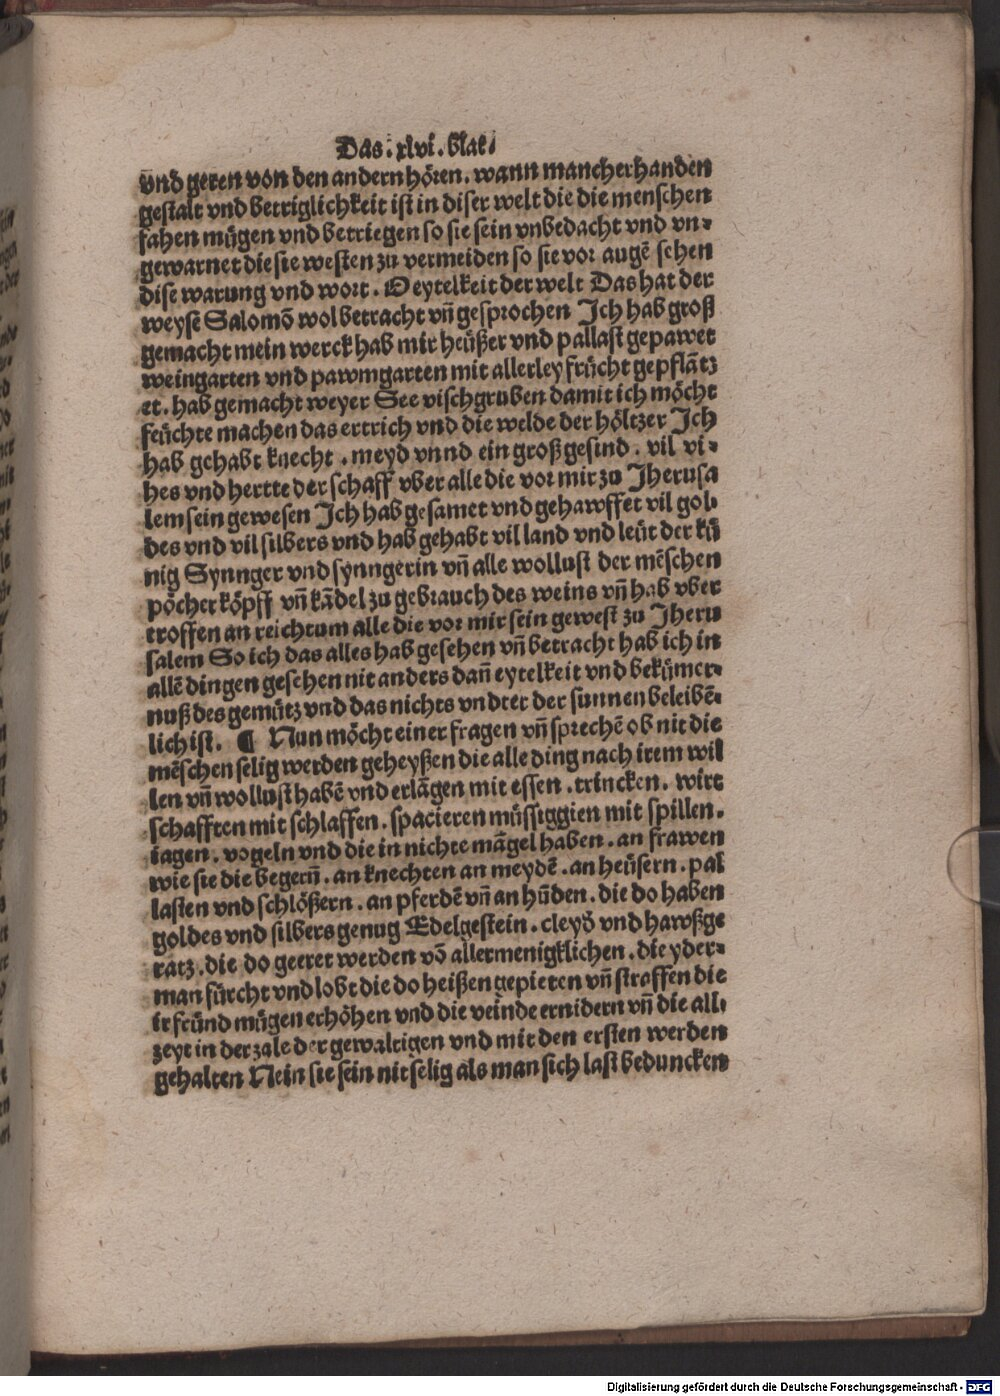 Das .xlvi. blat.
vnd geren von den andern hören. wann mancherhanden
gestalt vnd betriglichkeit ist in diser welt die die menschen
fahen mügen vnd betriegen so sie sein vnbedacht vnd vn-
gewarnet die sie westen zu vermeiden so sie vor augē sehen
dise warung vnd wort. O eytelkeit der welt Das hat der
weyse Salomō wol betracht vñ gesprochen Ich hab groß
gemacht mein werck hab mir heüßer vnd pallast gepawet
weingarten vnd pawmgarten mit allerley frücht gepflātz
et. hab gemacht weyer See vischgruben damit ich möcht
feüchte machen das ertrich vnd die welde der höltzer Ich
hab gehabt knecht. meyd vnnd ein groß gesind. vil vi-
hes vnd hertte der schaff vber alle die vor mir zu Jherusa
lem sein gewesen Ich hab gesamet vnd gehawffet vil gol-
des vnd vil silbers vnd hab gehabt vil land vnd leüt der kü
nig Synnger vnd synngerin vñ alle wollust der mēschen
pöcher köpff vñ kādel zu gebrauch des weins vñ hab vber
troffen an reichtum alle die vor mir sein gewest zu Jheru
salem So ich das alles hab gesehen vñ betracht hab ich in
allē dingen gesehen nit anders dañ eytelkeit vnd bekümer-
nuß des gemütz vnd das nichts vndter der sunnen beleibē-
lich ist. ¶ Nun möcht einer fragen vñ sprechē ob nit die
mēschen selig werden geheyßen die alle ding nach irem wil
len vñ wollust habē vnd erlāgen mit essen. trincken. wirt
schafften mit schlaffen. spacieren müssiggien mit spillen.
iagen. vogeln vnd die in nichte māgel haben. an frawen
wie sie die begerñ. an knechten an meydē. an heüsern. pal
lasten vnd schlößern. an pferdē vñ an hūden. die do haben
goldes vnd silbers genug Edelgestein. cleyd vnd hawßge
ratz. die do geeret werden vō allermenigklichen. die yder-
man fürcht vnd lobt die do heißen gepieten vñ straffen die
ir freünd mügen erhöhen vnd die veinde ernidern vñ die all-
zeyt in der zale der gewaltigen vnd mit den ersten werden
gehalten Nein sie sein nit selig als man sich last beduncken
Digitalisierung gefördert durch die Deutsche Forschungsgemeinschaft - DFG